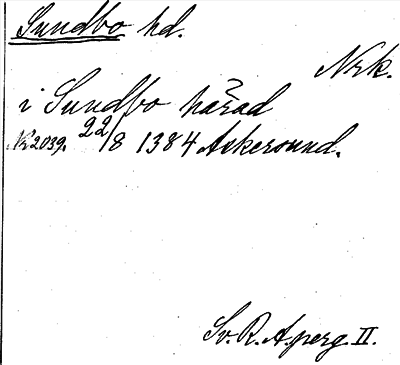 Sundbo hd.
Nrk.
i Sundbo härad
Nr 2039. 22/8 1384 Askersund.
Sv. R. A. perg. II.